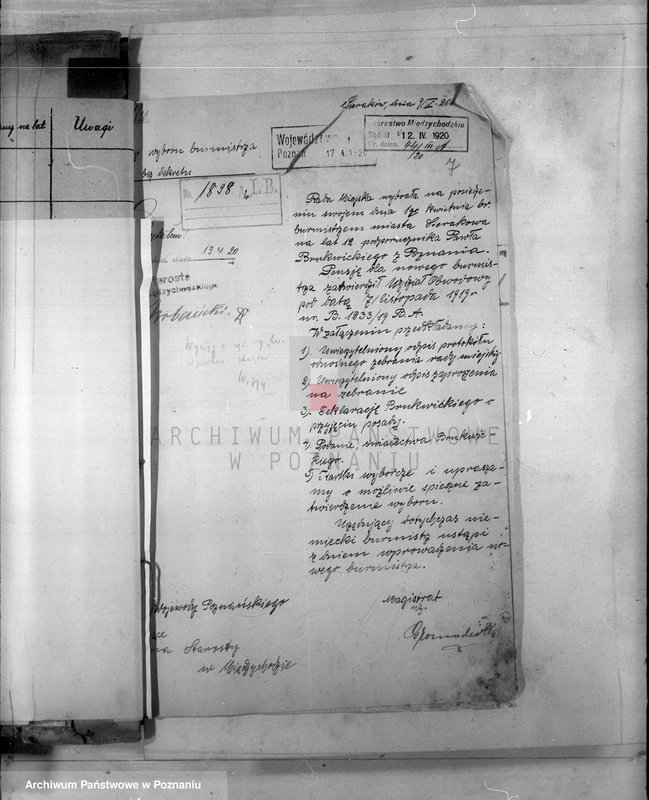 Uwagi
Sieraków, dnia
wyboru burmistrza
bez dekretu
Województwo
Poznań 17.4.1920
Starostwo Międzychodzkie
12. IV. 1920
7
No. 1898 I.B.
13.4.20
Starosta
Międzychodzkiego
Rada Miejska wybrała na posiedze-
niu swojem dnia kwietnia br.
burmistrzem miasta Sierakowa
na lat 12 podporucznika Pawła
Brukwickiego z Poznania.
Pensję dla nowego burmis-
trza zatwierdził Wydział Obwodowy
pod datą 7/listopada 1919 r.
nr. B. 1833/19 B.A.
W załączeniu przedkładamy:
1) Uwierzytelniony odpis protokołu
odnośnego zebrania rady miejskiej
2) Uwierzytelniony odpis zaproszenia
na zebranie
3) Deklarację Brukwickiego o
przyjęciu posady.
4) Podanie i świadectwa Brukwic-
kiego.
5) Kartki wyborcze i uprasza-
my o możliwie spieszne za-
twierdzenie wyboru.
Urzędujący dotychczas nie-
miecki burmistrz ustąpi
z dniem wprowadzenia no-
wego burmistrza.
Magistrat
Wojewody Poznańskiego
Starosty
w Międzychodzie
ARCHIWUM PAŃSTWOWE
W POZNANIU
Archiwum Państwowe w Poznaniu